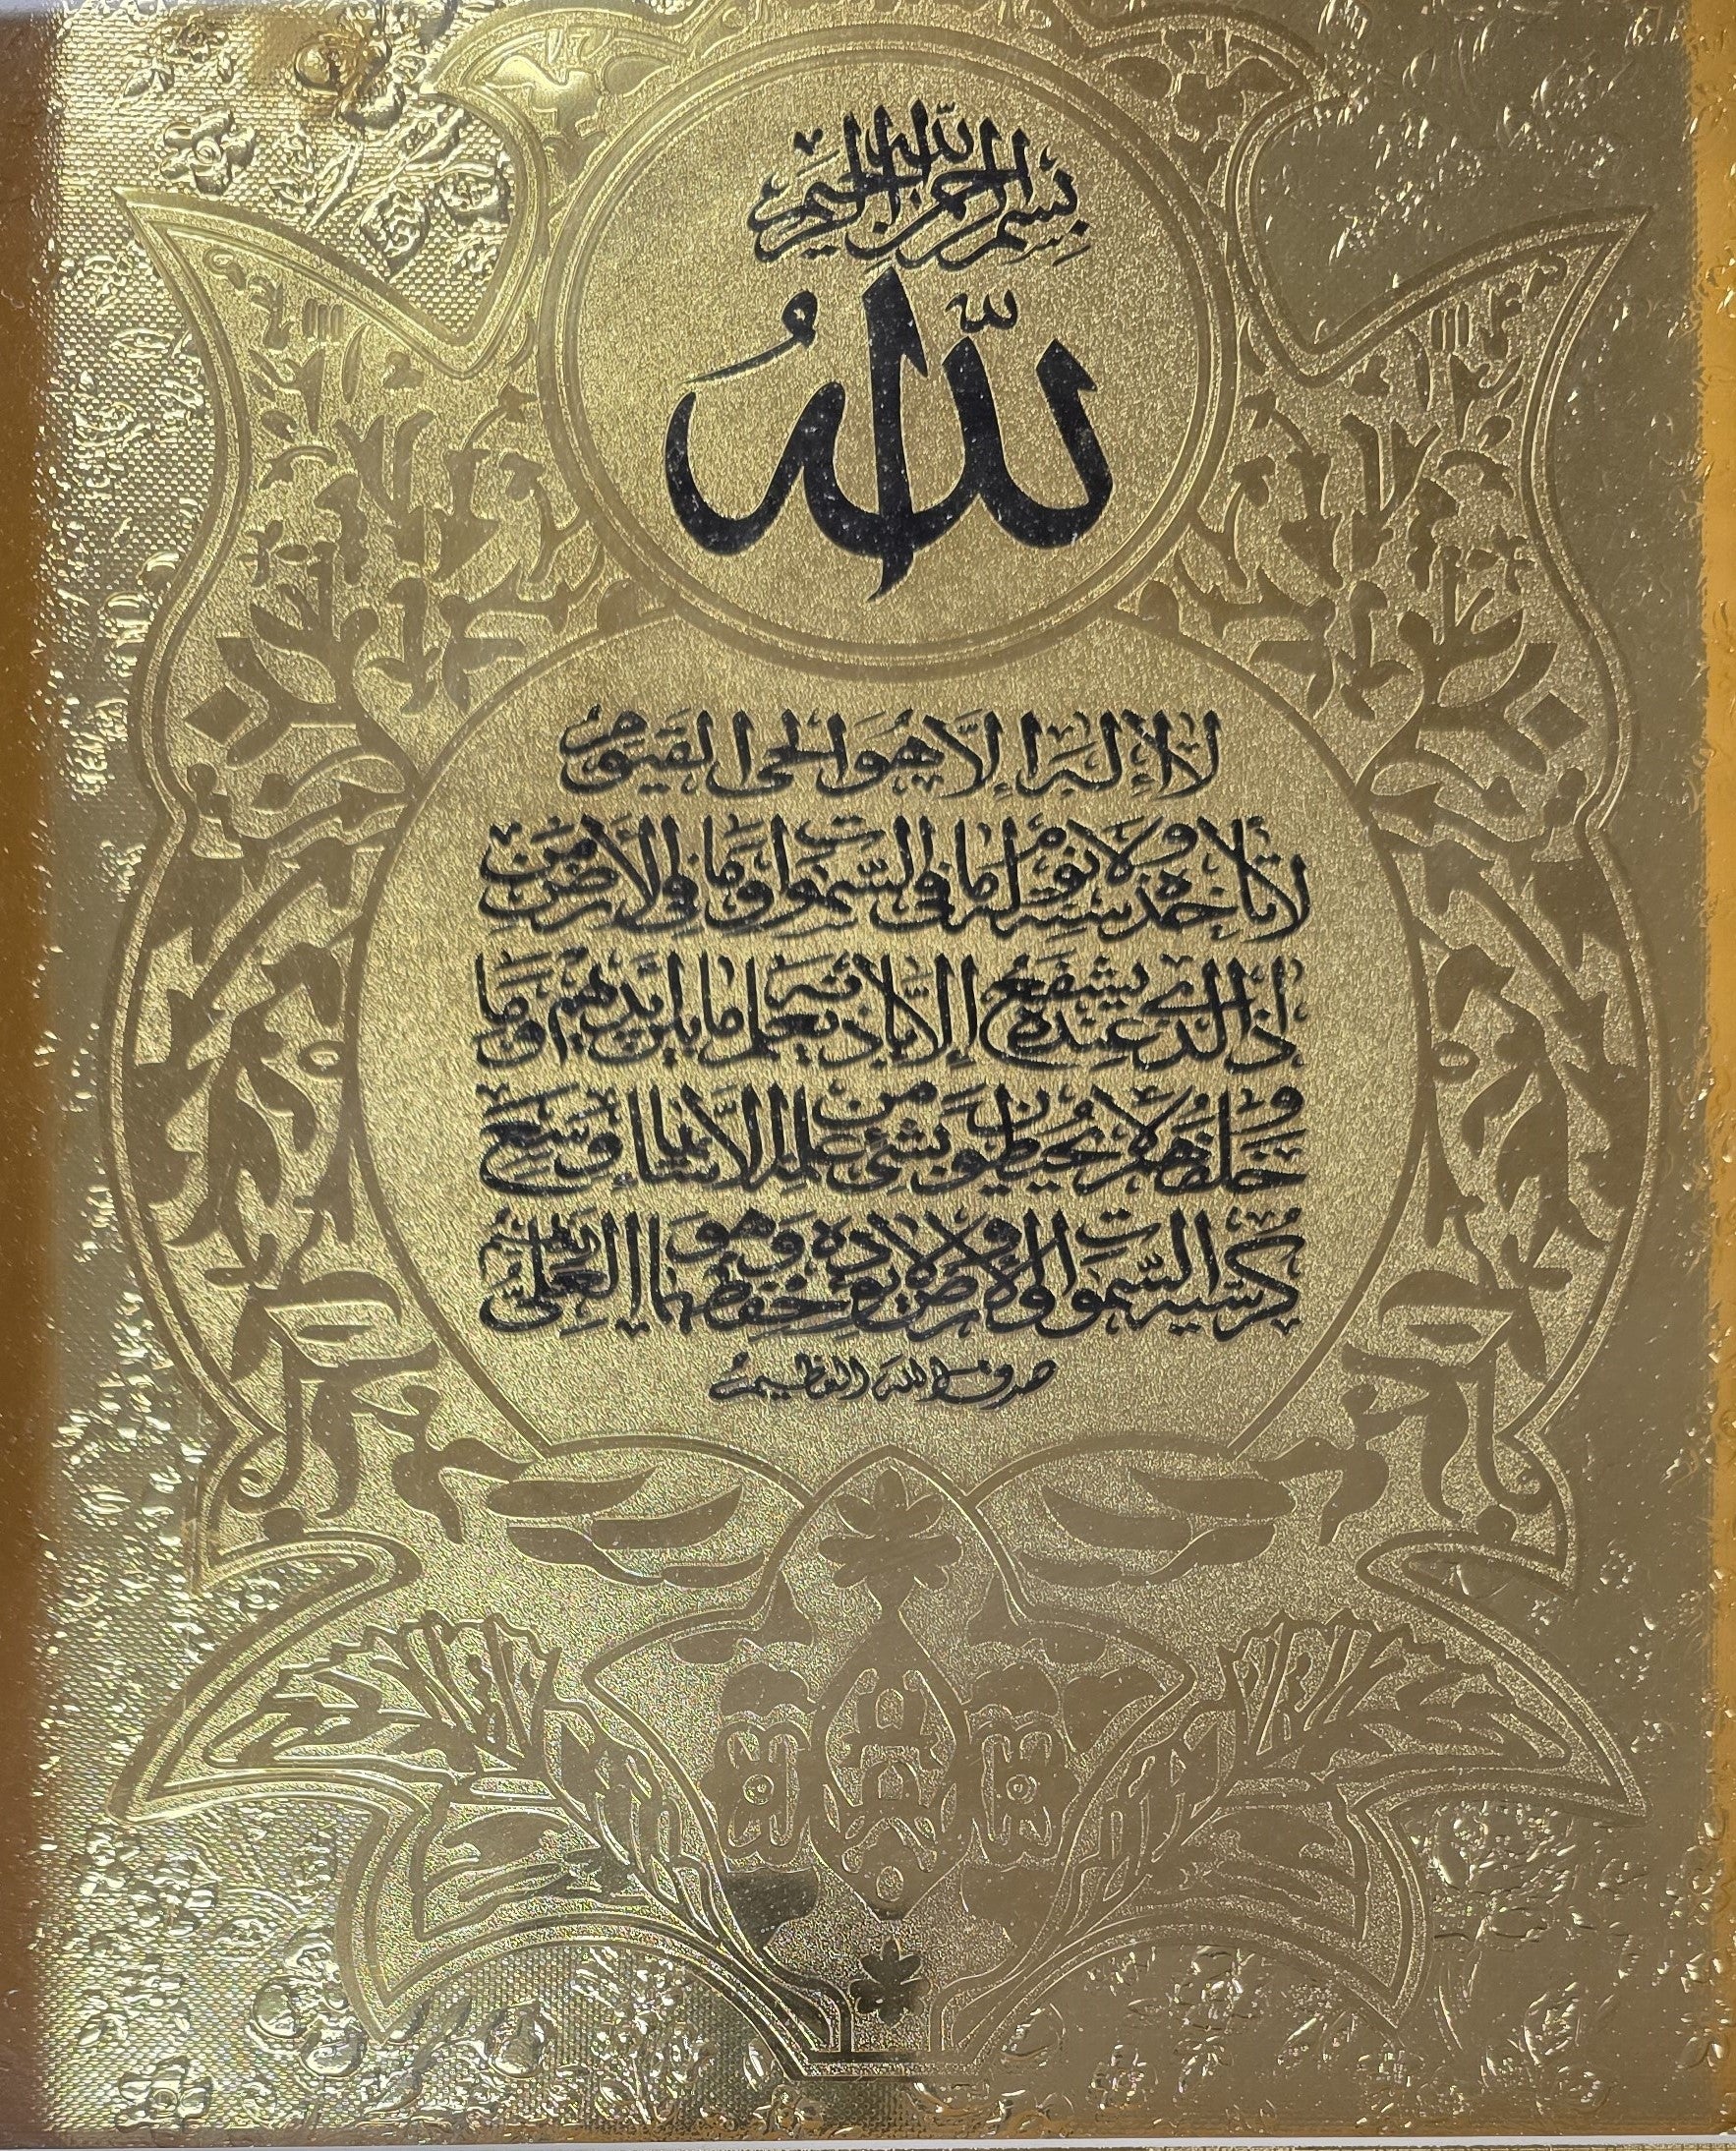 بِسْمِ اللّٰهِ الرَّحْمٰنِ الرَّحِيْمِ
اللّٰهُ
لَا إِلٰهَ إِلَّا هُوَ الْحَىُّ الْقَيُّوْمُ
لَا تَأْخُذُهُ سِنَةٌ وَلَا نَوْمٌ لَهُ مَا فِى السَّمٰوٰتِ وَمَا فِى الْأَرْضِ مَنْ
ذَا الَّذِى يَشْفَعُ عِنْدَهُ إِلَّا بِإِذْنِهِ يَعْلَمُ مَا بَيْنَ أَيْدِيْهِمْ وَمَا
خَلْفَهُمْ وَلَا يُحِيْطُوْنَ بِشَىْءٍ مِنْ عِلْمِهِ إِلَّا بِمَا شَاءَ وَسِعَ
كُرْسِيُّهُ السَّمٰوٰتِ وَالْأَرْضَ وَلَا يَئُوْدُهُ حِفْظُهُمَا وَهُوَ الْعَلِىُّ الْعَظِيْمُ
صدق الله العظيم